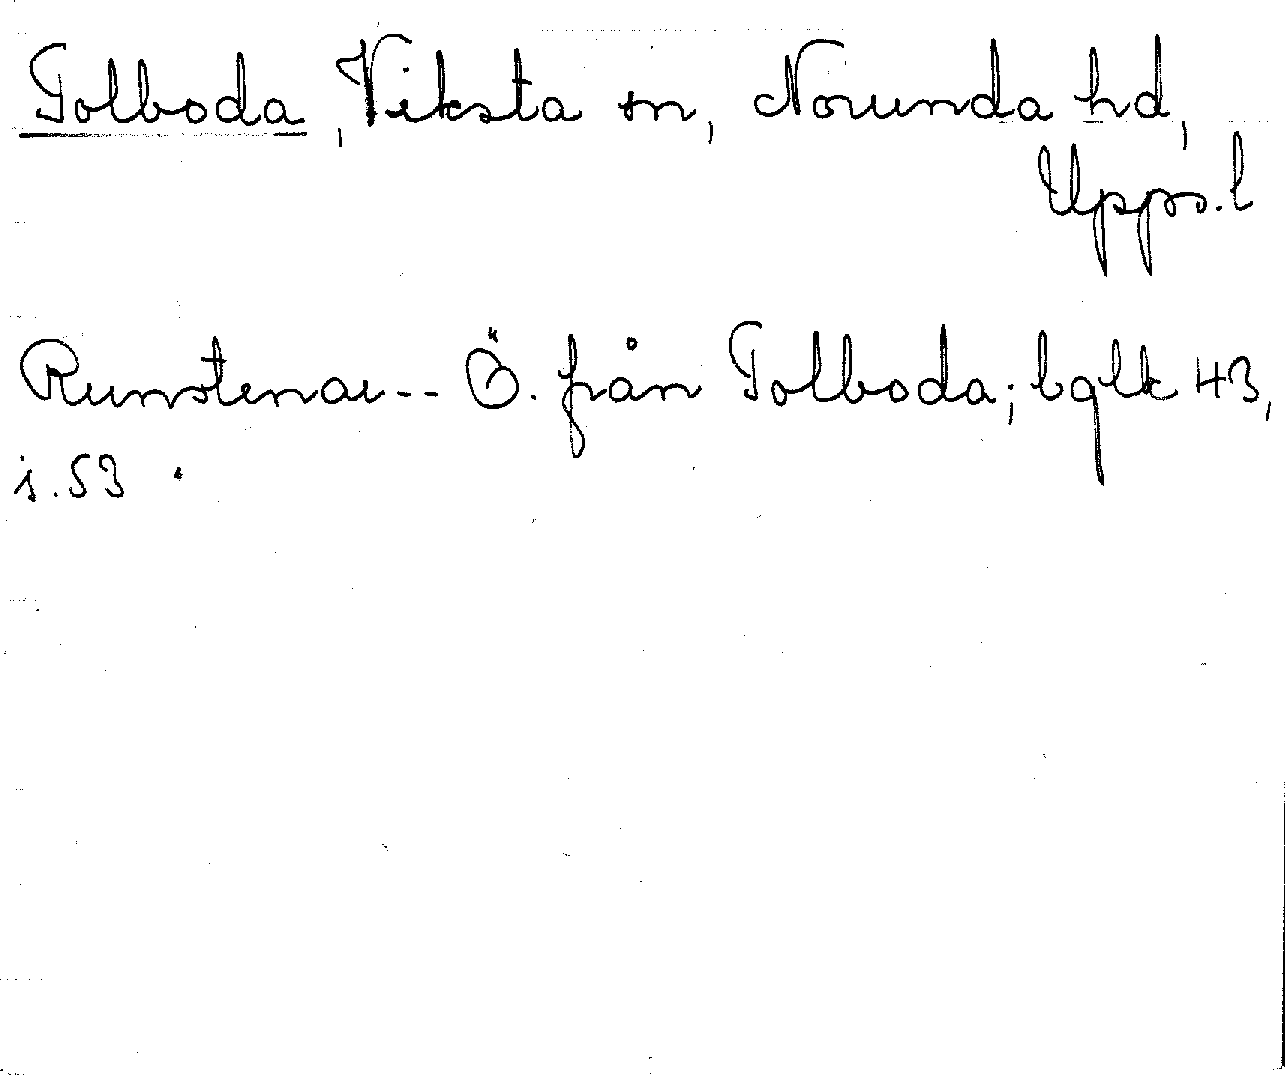 Tolboda, Viksta sn, Norunda hd,
Upps. l
Runstenar -- Ö. från Tolboda; bglk 43,
s. 53.